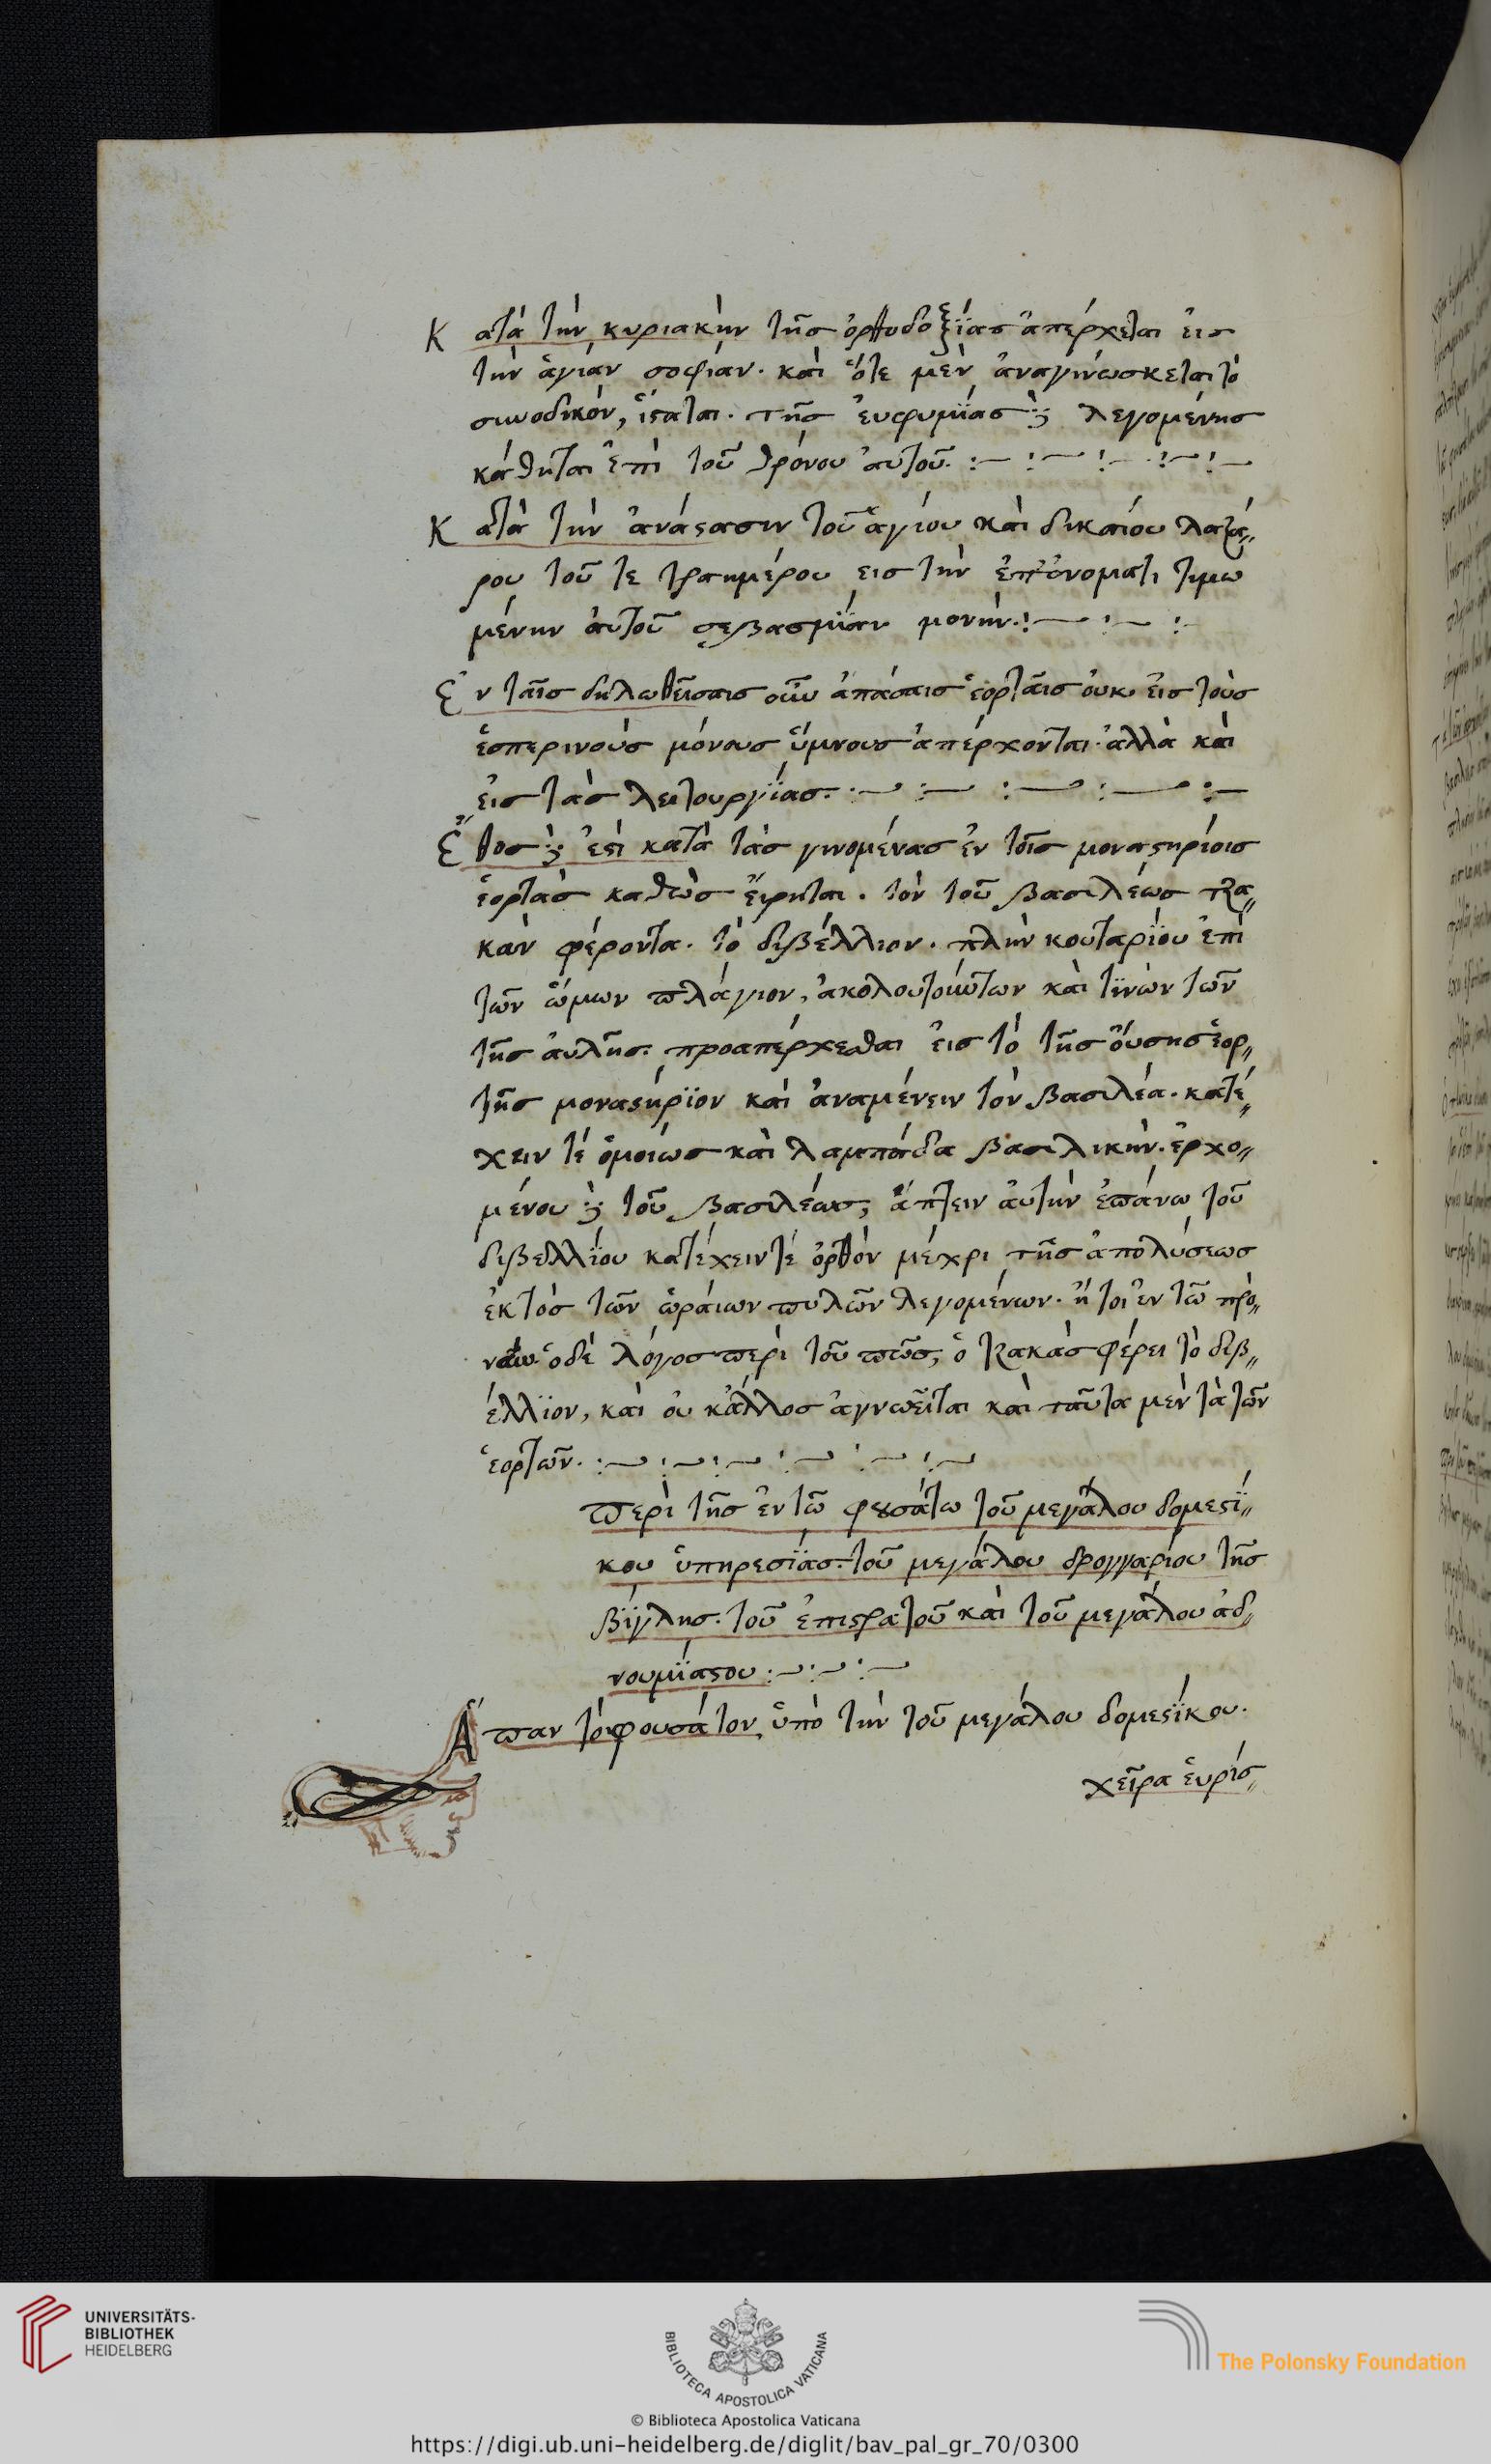 Κατὰ τὴν κυριακὴν τῆς ὀρθοδοξίας ἀπέρχεται εἰς
τὴν ἁγίαν σοφίαν. καὶ ὅτε μὲν ἀναγινώσκεται τὸ
συνοδικόν, ἵσταται. τῆς ἐυφυμΐας δὲ λεγομένης
κάθηται ἐπὶ τοῦ θρόνου αὐτοῦ.
Κατὰ τὴν ἀνάστασιν τοῦ ἁγίου καὶ δικαίου λαζά„
ρου τοῦ τετραημέρου εις τὴν ἐπ' ὀνόματι τιμω
μένην ἀυτοῦ σεβασμΐαν μονήν.
Ἐν ταῖς δηλωθεῖσαις οὖν ἁπάσαις ἑορταῖς ὀυκ εἰς τοὺς
ἑσπερινοὺς μόνους ὕμνους ἀπέρχονται. ἀλλὰ καὶ
εἰς τὰς λειτουργΐας.
Ἔθος δὲ ἐστὶ κατὰ τὰς γινομένας ἐν τοῖς μοναστηρίοις
ἑορτὰς καθὼς ἔιρηται. τὸν τοῦ βασιλέως τζα„
κὰν φέροντα. τὸ διβέλλιον. πλὴν κουταρΐου ἐπὶ
τῶν ὤμων πλάγιον, ἀκολουτούντων καὶ τϊνῶν τῶν
τῆς ἀυλῆς. προαπέρχεσθαι εἰς τὸ τῆς ὄυσης ἑορ„
τῆς μοναστήρϊον καὶ ἀναμένειν τὸν βασιλέα. κατέ„
χειν τὲ ὁμοιώς καὶ λαμπάδα βασιλικὴν. ἐρχο„
μένου δὲ τοῦ βασιλέως, ἅπτειν ἀυτὴν ἐπάνω τοῦ
διβελλΐου κατέχειν τὲ ὀρθὸν μέχρι τῆς ἀπολύσεως
ἐκτὸς τῶν ὡράιων πυλῶν λεγομένων. ἤτοι ἐν τῶ προ„
νάω. ὁ δὲ λόγος περὶ τοῦ πῶς, ὁ τζακὰς φέρει τὸ διβ„
έλλϊον, καὶ οὐκ ἄλλος ἀγνωεῖται καὶ ταῦτα μὲν τὰ τῶν
ἑορτῶν.
Περὶ τῆς ἐν τῶ φουσάτω τοῦ μεγάλου δομεστΐ„
κου ὑπηρεσΐας. τοῦ μεγάλου δρογγαρίου τῆς
βΐγλης. τοῦ ἐπιστρατοῦ καὶ τοῦ μεγάλου ἀδ„
νουμΐαστου
Ἅπαν τὸ φουσάτον ὑπὸ τὴν τοῦ μεγάλου δομεστΐκου.
χεῖρα ἑυρίσ„
UNIVERSITÄTS-
BIBLIOTHEK
HEIDELBERG
BIBLIOTECA APOSTOLICA VATICANA
The Polonsky Foundation
© Biblioteca Apostolica Vaticana
https://digi.ub.uni-heidelberg.de/diglit/bav_pal_gr_70/0300